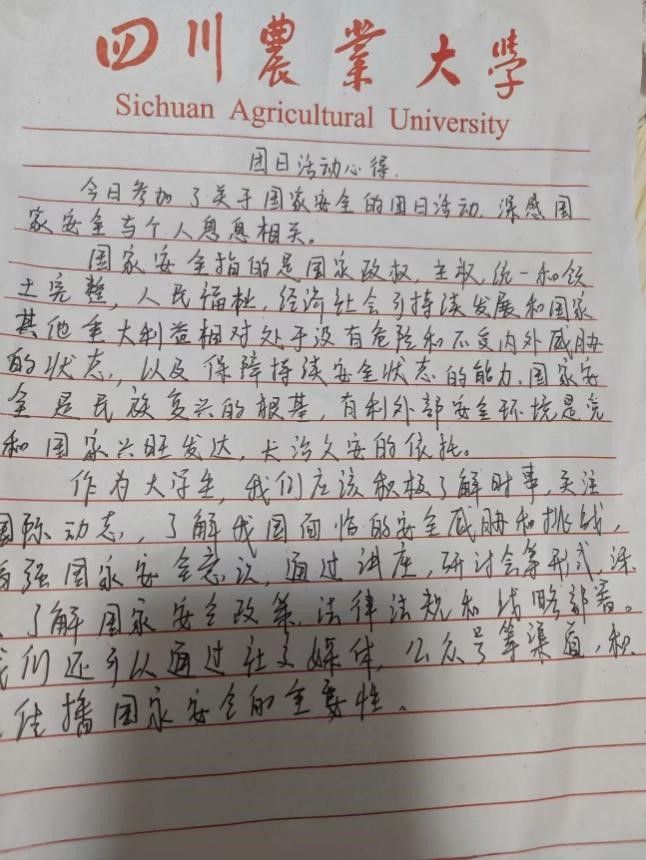 四川農業大學
Sichuan Agricultural University
团日活动心得.
今日参加了关于国家安全的团日活动,深感国
家安全与个人息息相关。
国家安全指的是国家政权,主权,统一和领
土完整,人民福祉,经济社会可持续发展和国家
其他重大利益相对处于没有危险和不受内外威胁
的状态,以及保障持续安全状态的能力,国家安
全是民族复兴的根基,有利外部安全环境是党
和国家兴旺发达,长治久安的依托。
作为大学生,我们应该积极了解时事,关注
国际动态,了解我国面临的安全威胁和挑战,
增强国家安全意识,通过讲座,研讨会等形式,深
了解国家安全政策,法律法规和战略部署。
我们还可以通过社交媒体,公众号等渠道,积
传播国家安全的重要性.